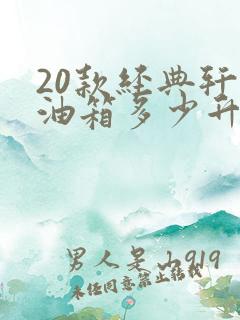 20款经典轩
油箱多少升
男人是山919
未经同意禁止转载